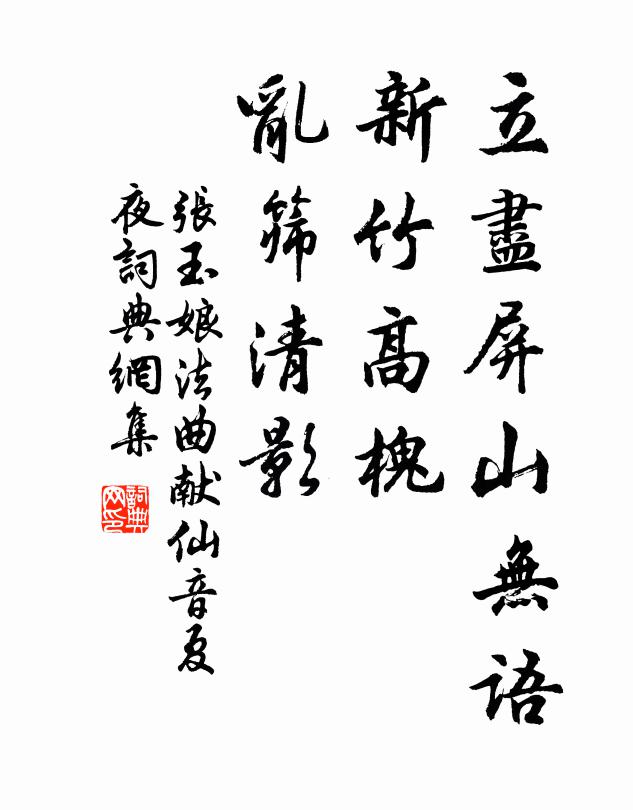 立盡屏山無語
新竹高槐
亂篩清影
張玉娘法曲献仙音夏
夜詞典網集
詞典
网印